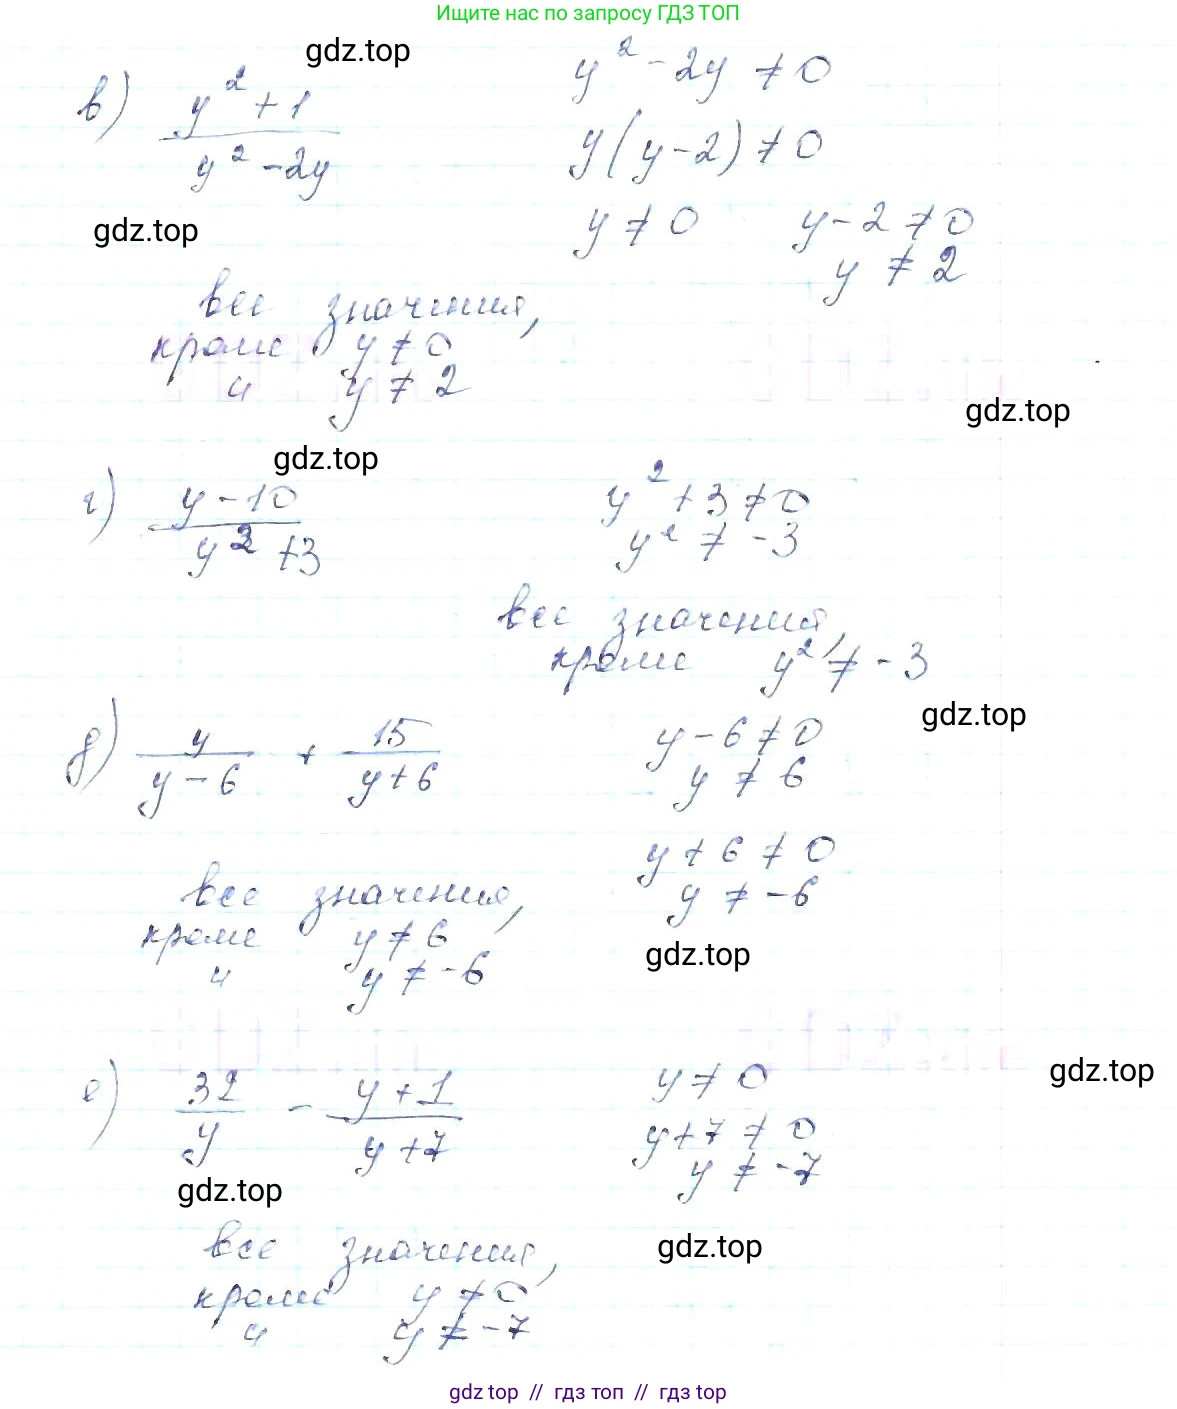 Ищите нас по запросу ГДЗ ТОП
gdz.top
в) (y² + 1)/(y² - 2y)
y² - 2y ≠ 0
y(y-2) ≠ 0
gdz.top
y ≠ 0 y - 2 ≠ 0
y ≠ 2
все значения,
кроме y ≠ 0
и y ≠ 2
gdz.top
gdz.top
г) (y - 10)/(y² + 3)
y² + 3 ≠ 0
y² ≠ -3
все значения,
кроме y² ≠ -3
gdz.top
д) y/(y - 6) + 15/(y + 6)
y - 6 ≠ 0
y ≠ 6
y + 6 ≠ 0
y ≠ -6
все значения,
кроме y ≠ 6
и y ≠ -6
gdz.top
gdz.top
е) 32/y - (y + 1)/(y + 7)
y ≠ 0
y + 7 ≠ 0
y ≠ -7
gdz.top
gdz.top
все значения,
кроме y ≠ 0
и y ≠ -7
gdz top // гдз топ // гдз top